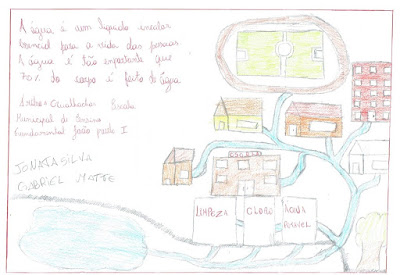 A água é um liquido incolor
Essencial para a vida das pessoas
A água é tão importante que
70% do corpo é feito de água.
Escola
Municipal de Ensino
Fundamental João paulo I
JONATA SILVA
GABRIEL MOTTE
ESGOTO
LIMPEZA
CLORO
ÁGUA
POTÁVEL